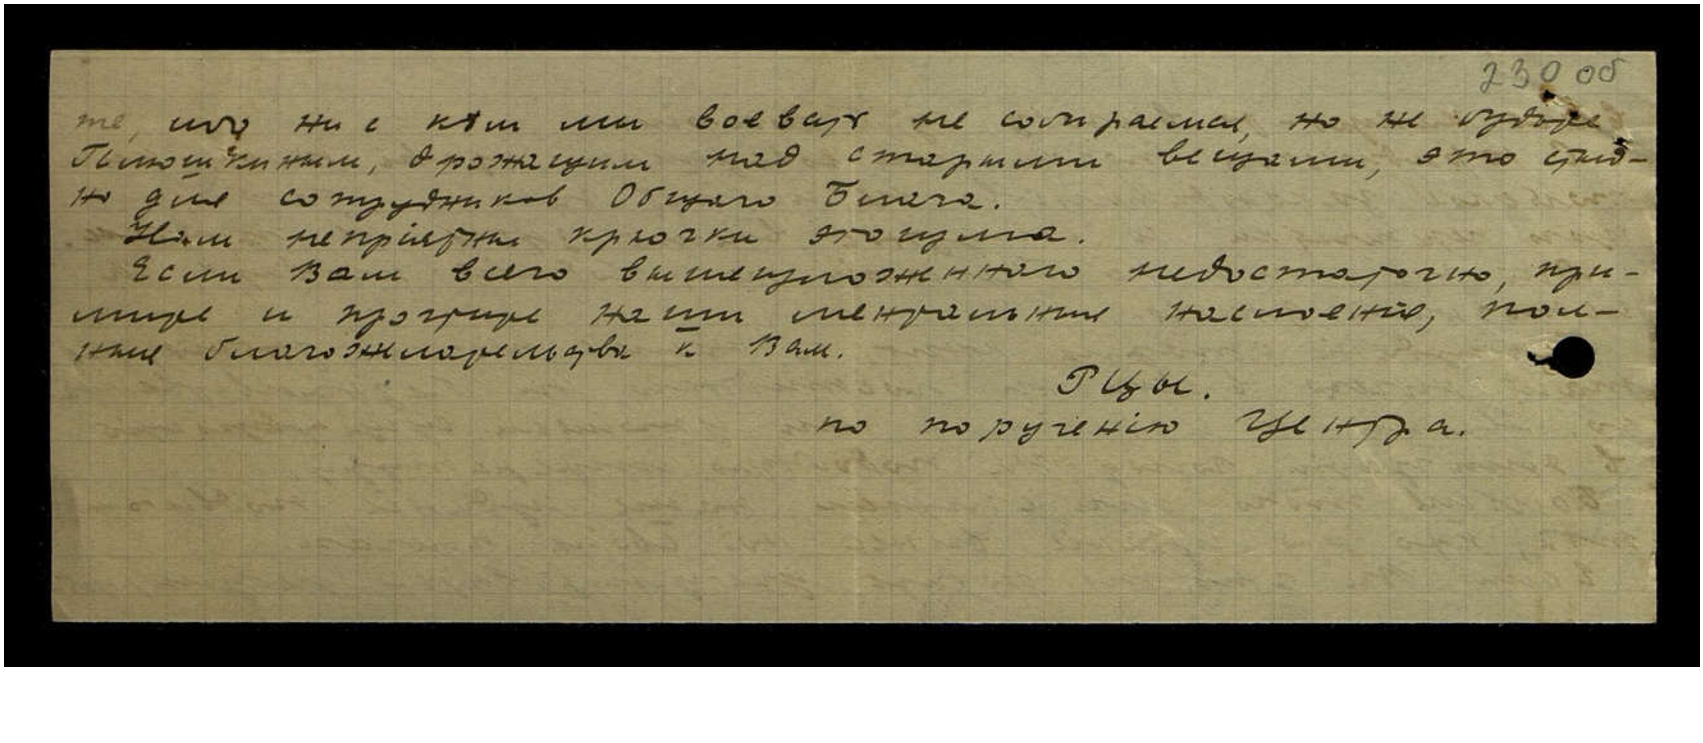 230 об
те, что ни с кѣм мы воевать не собираемся, но не будьте
Плюшкиным, дрожащим над старыми вещами, это стыд-
но для сотрудников Общаго Блага.
Нам неприятны крючки
Если Вам всего вышеизложеннаго недостаточно, при-
мите и прочтите наши ментальныя наслоенія, пол-
ныя благожелательства к Вам.
Рцы.
по порученію Центра.